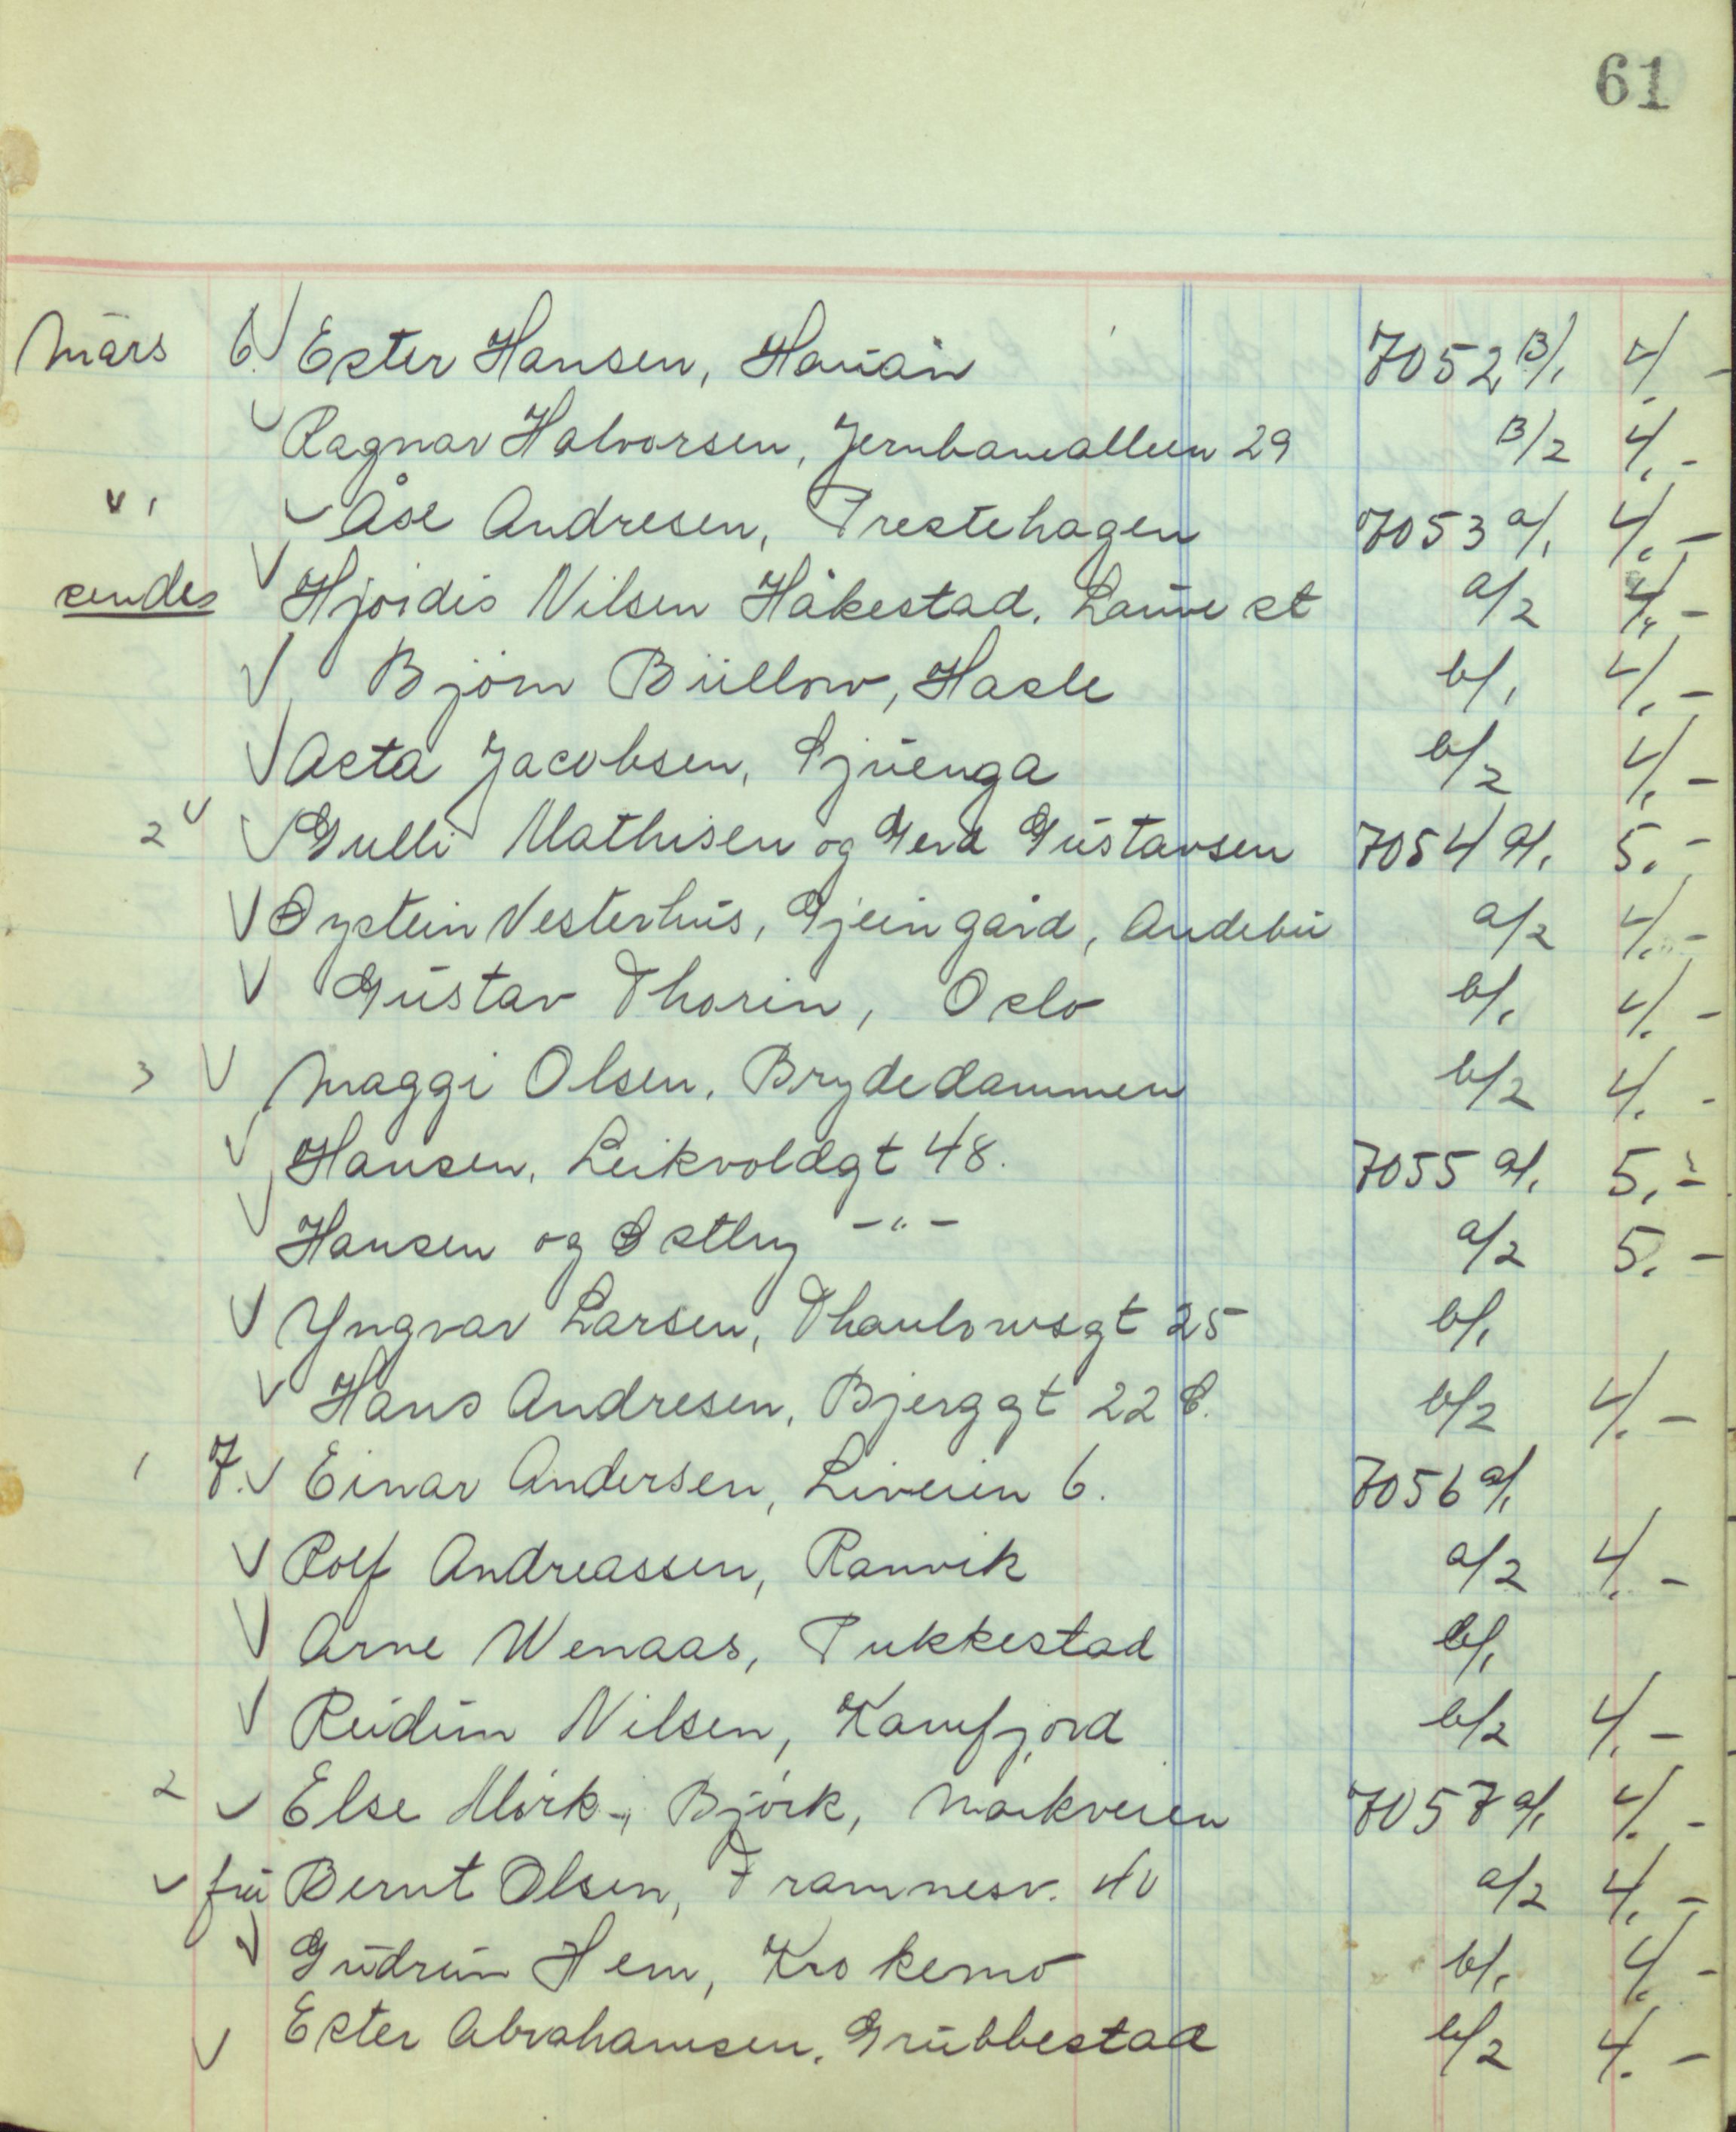 61
Mars 6. Ester Hansen, Hauan 7052 B/1 4,-
Ragnar Halvorsen, Jernbanealleen 29 B/2 4,-
1 Åse Andresen, Prestehagen 7053 a/1 4,-
sendes Hjördis Nilsen Håkestad. Lauve st a/2 4,-
Björn Büllow, Hasle b/1 4,-
Asta Jacobsen, Sjuenga b/2 4,-
2 Gulli Mathisen og Gerd Gustavsen 7054 a/1 5,-
Øystein Vesterhus, Gjein gård, Andebu a/2 4,-
Gustav Thorin, Oslo b/1 4,-
3 Maggi Olsen, Brydedammen b/2 4,-
Hansen, Leikvoldgt 48. 7055 a/1 5,-
Hansen og Østby -"- a/2 5,-
Yngvar Larsen, Thaulowsgt 25 b/1
Hans Andresen, Bjerggt 22 b/2 4,-
1 7. Einar Andersen, Liveien 6. 7056 a/1
Rolf Andreassen, Ranvik a/2 4,-
Arne Wenaas, Pukkestad b/1
Reidun Nilsen, Kamfjord b/2 4,-
2 Else Mörk, Björk, Markveien 7057 a/1 4,-
fru Bernt Olsen, Framnesv. 40 a/2 4,-
Gudrun Hem, Krokemo b/1 4,-
Ester Abrahamsen, Grubbestad b/2 4,-